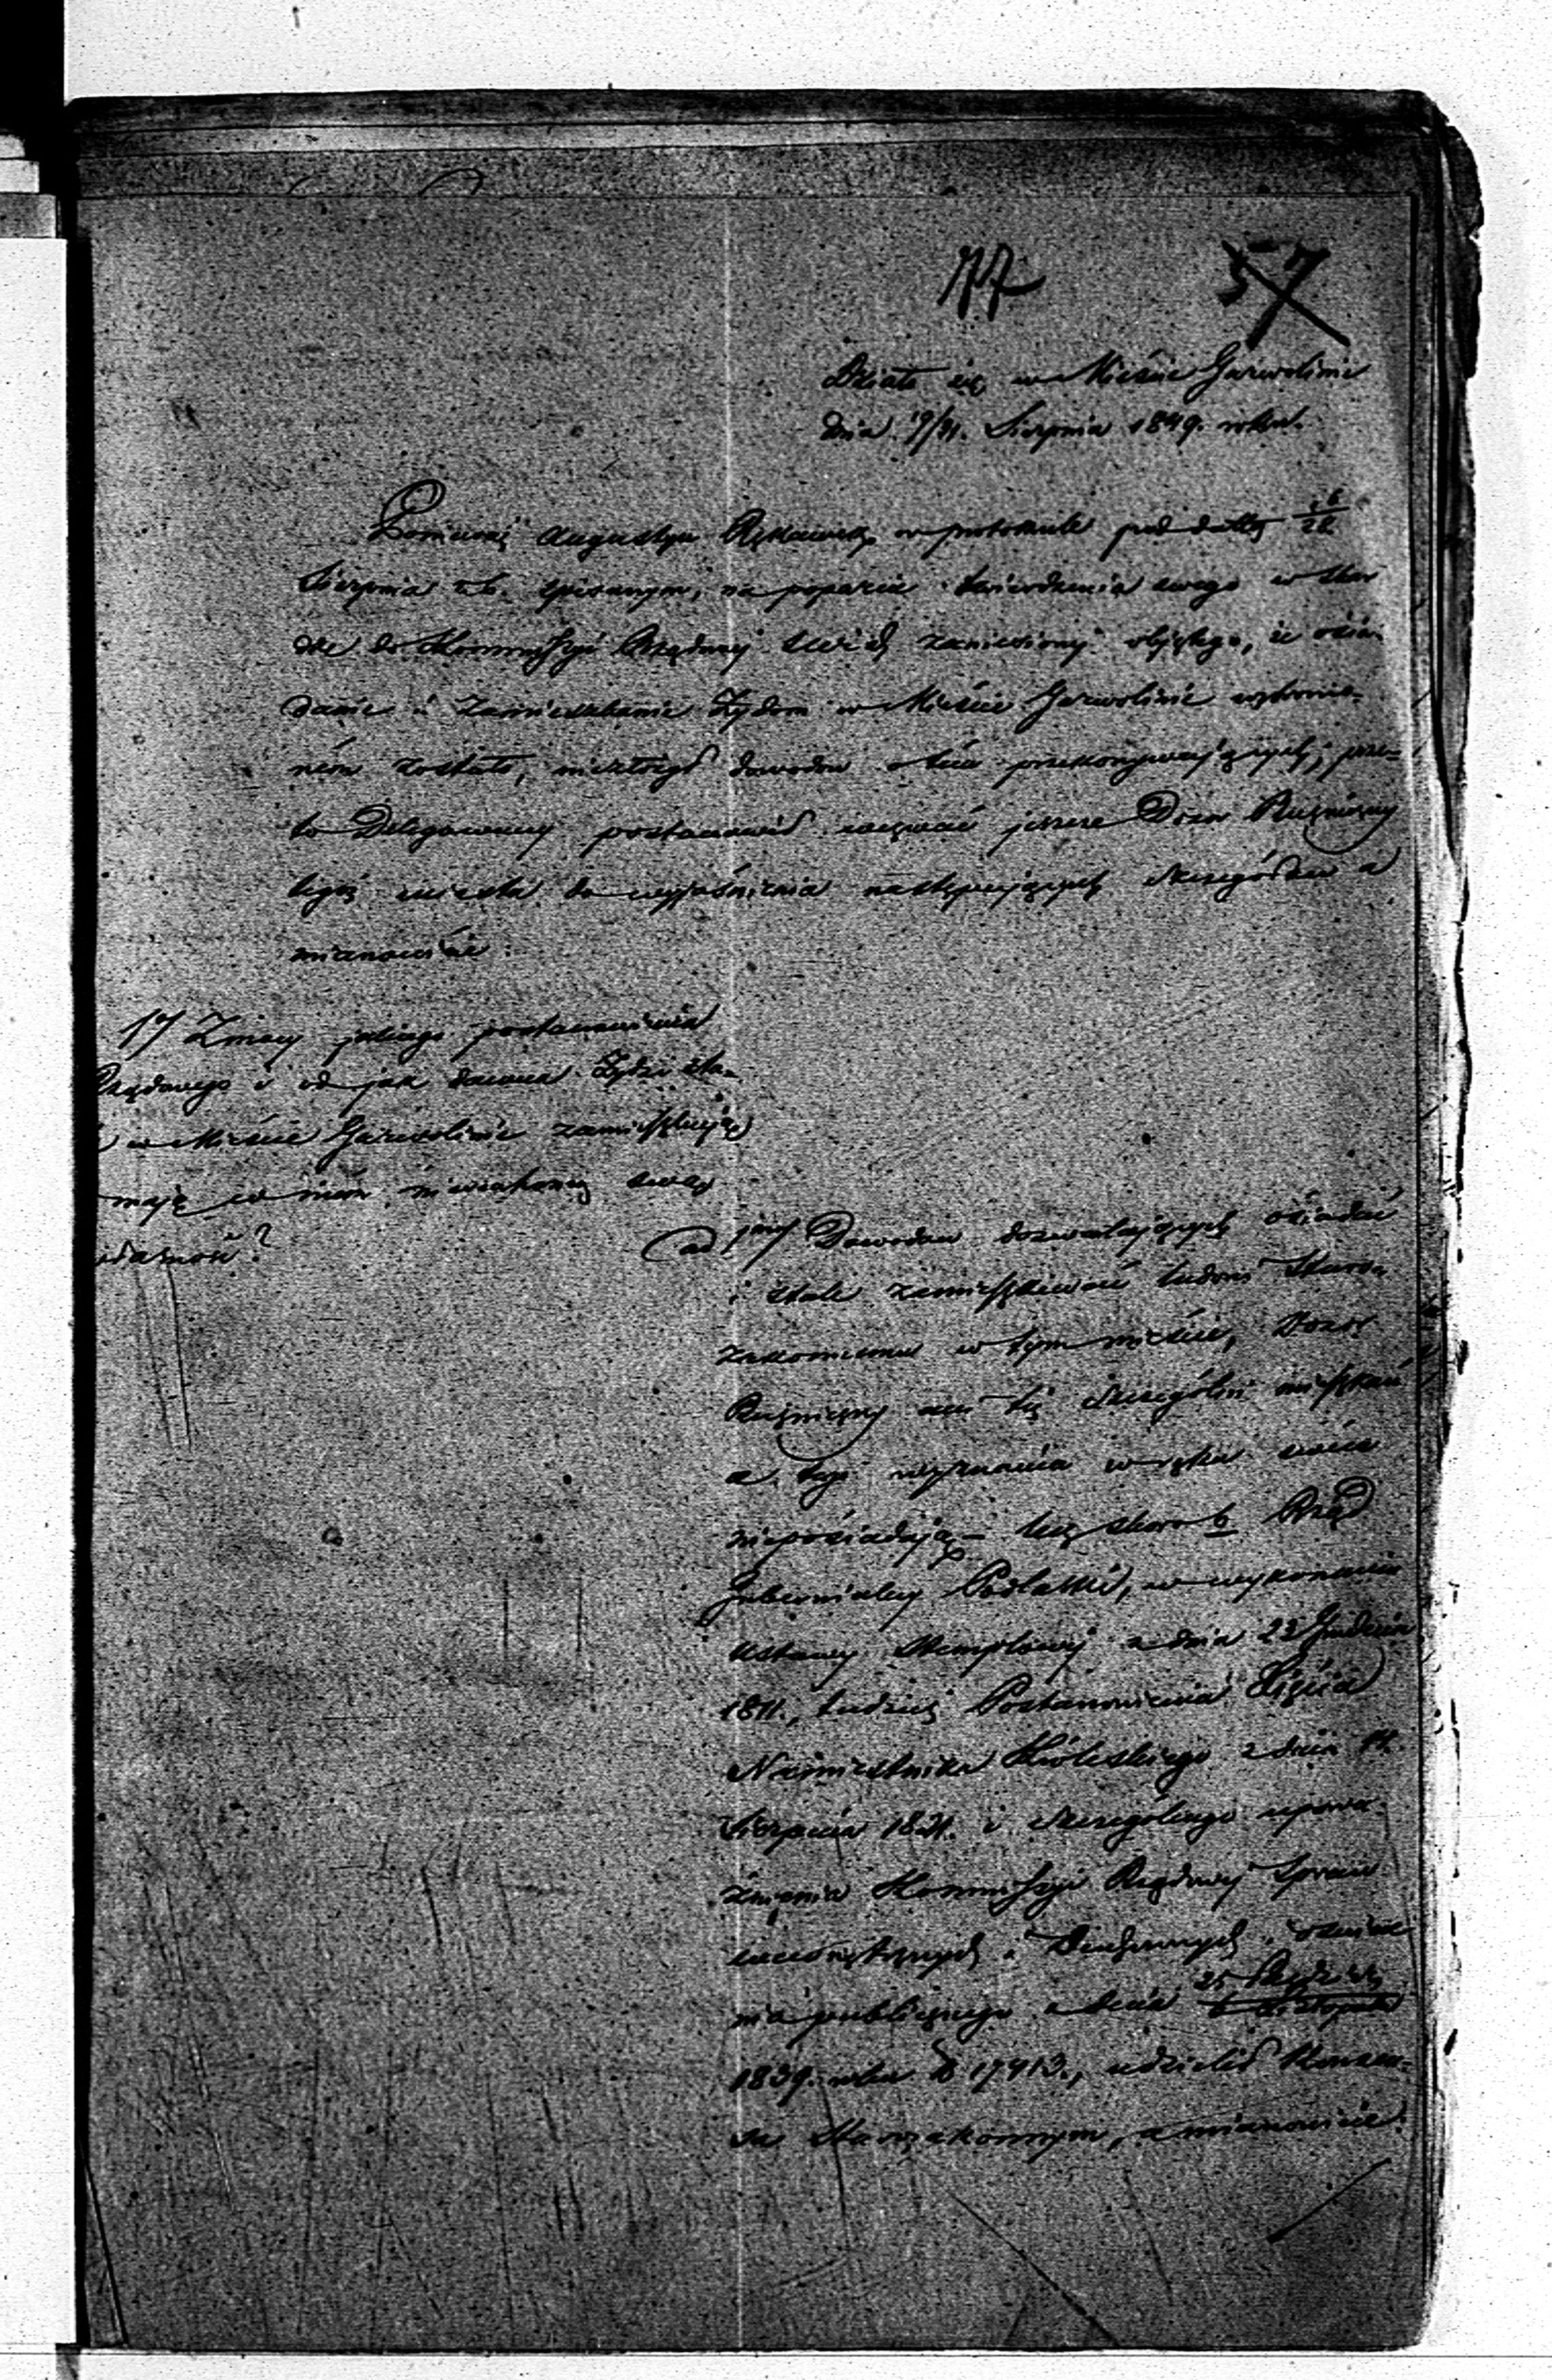 77 57
Działo się w Mieście Garwolinie
dnia 19/31. Sierpnia 1849. roku.
Ponieważ Augustyn Rękawek, w protokule pod datą 16/28
Sierpnia r.b. spisanym, na poparcie twierdzenia swego w skar
dze do Kommissyi Rządowej zaniesionej objętego, że osia-
danie i zamieszkanie Żydom w Mieście Garwolinie wzbronio-
ném zostało, niezłożył dowodów przekonywających; prze-
to Delegowany postanowił wezwać jeszcze Dozór Bużniczny
tegoż miasta do wyjaśnienia następujących szczegółów a
mianowicie:
1º/ Z mocy jakiego postanowienia
Rządowego i od jak dawna Żydzi sta-
w Mieście Garwolinie zamieszkują
mają w niém nieruchomą swą
własność?
ad 1mo/ Dowodów dozwalających osiadać
i stale zamieszkiwać ludowi Staro-
zakonnemu w tym mieście, Dozór
Bużniczny ani też szczególni mieszkań
a tego wyznania w ręku swém
nieposiadają – lecz skoro b. Rząd
Gubernialny Podlaski, w wykonaniu
ustawy Stemplowej z dnia 23 Grudnia
1811., tudzież Postanowienia Xięcia
Namiestnika Królewskiego z dnia 14.
Sierpnia 1821. i szczególnego upowa-
żnienia Kommissyi Rządowej Spraw
wewnętrznych i Duchownych i oświece
nia publicznego z dnia 25 Paźdz.
6 Listopada
1839. roku № 17413., udzielił Konsen-
sa Starozakonnym, a mianowicie: